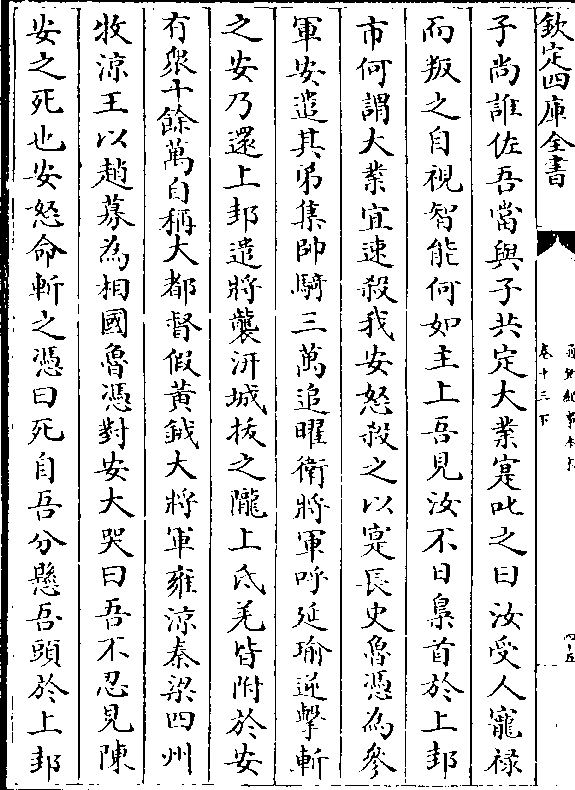 欽定四庫全書
卷十三下
子尚誰佐吾當與子共定大業寔叱之曰汝受人寵祿
而叛之自視智能何如主上吾見汝不日梟首於上邽
市何謂大業宜速殺我安怒殺之以寔長史魯憑為參
軍安遣其弟集帥騎三萬追曜衛將軍呼延瑜逆擊斬
之安乃還上邽遣將襲汧城拔之隴上氐羌皆附於安
有衆十餘萬自稱大都督假黄鉞大將軍雍涼秦梁四州
牧涼王以趙募為相國魯憑對安大哭曰吾不忍見陳
安之死也安怒命斬之憑曰死自吾分懸吾頭於上邽